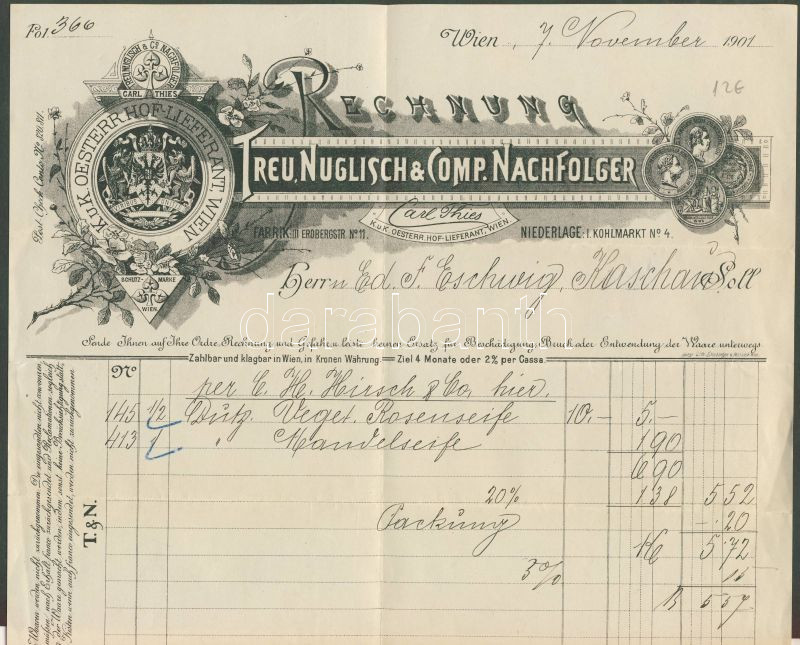 Fol. 366
Wien, 7. November 1901
126
RECHNUNG
TREU, NUGLISCH & Co NACHFOLGER
CARL THIES
K.u.K. OESTERR. HOF-LIEFERANT WIEN
SCHUTZ MARKE
WIEN.
TREU, NUGLISCH & COMP. NACHFOLGER
Carl Thies
K.u.K. OESTERR. HOF-LIEFERANT, WIEN
FABRIK: III ERDBERGSTR. No 11.
NIEDERLAGE: I. KOHLMARKT No 4.
Herrn Ed. F. Eschwig, Kaschau Soll
darabanth
Sende Ihnen auf Ihre Ordre, Rechnung und Gefahr u. leiste keinen Ersatz für Beschädigung, Bruch oder Entwendung der Waare unterwegs
Zahlbar und klagbar in Wien, in Kronen Währung. Ziel 4 Monate oder 2% per Cassa.
No
per C. H. Hirsch & Co, hier.
145 1/2 Dutz. Veget. Rosenseife 10.- 5.-
413 1 " Mandelseife 1 90
6 90
20% 1 38 5 52
Packung -. 20
K 5.72
3%
5 57
T. & N.